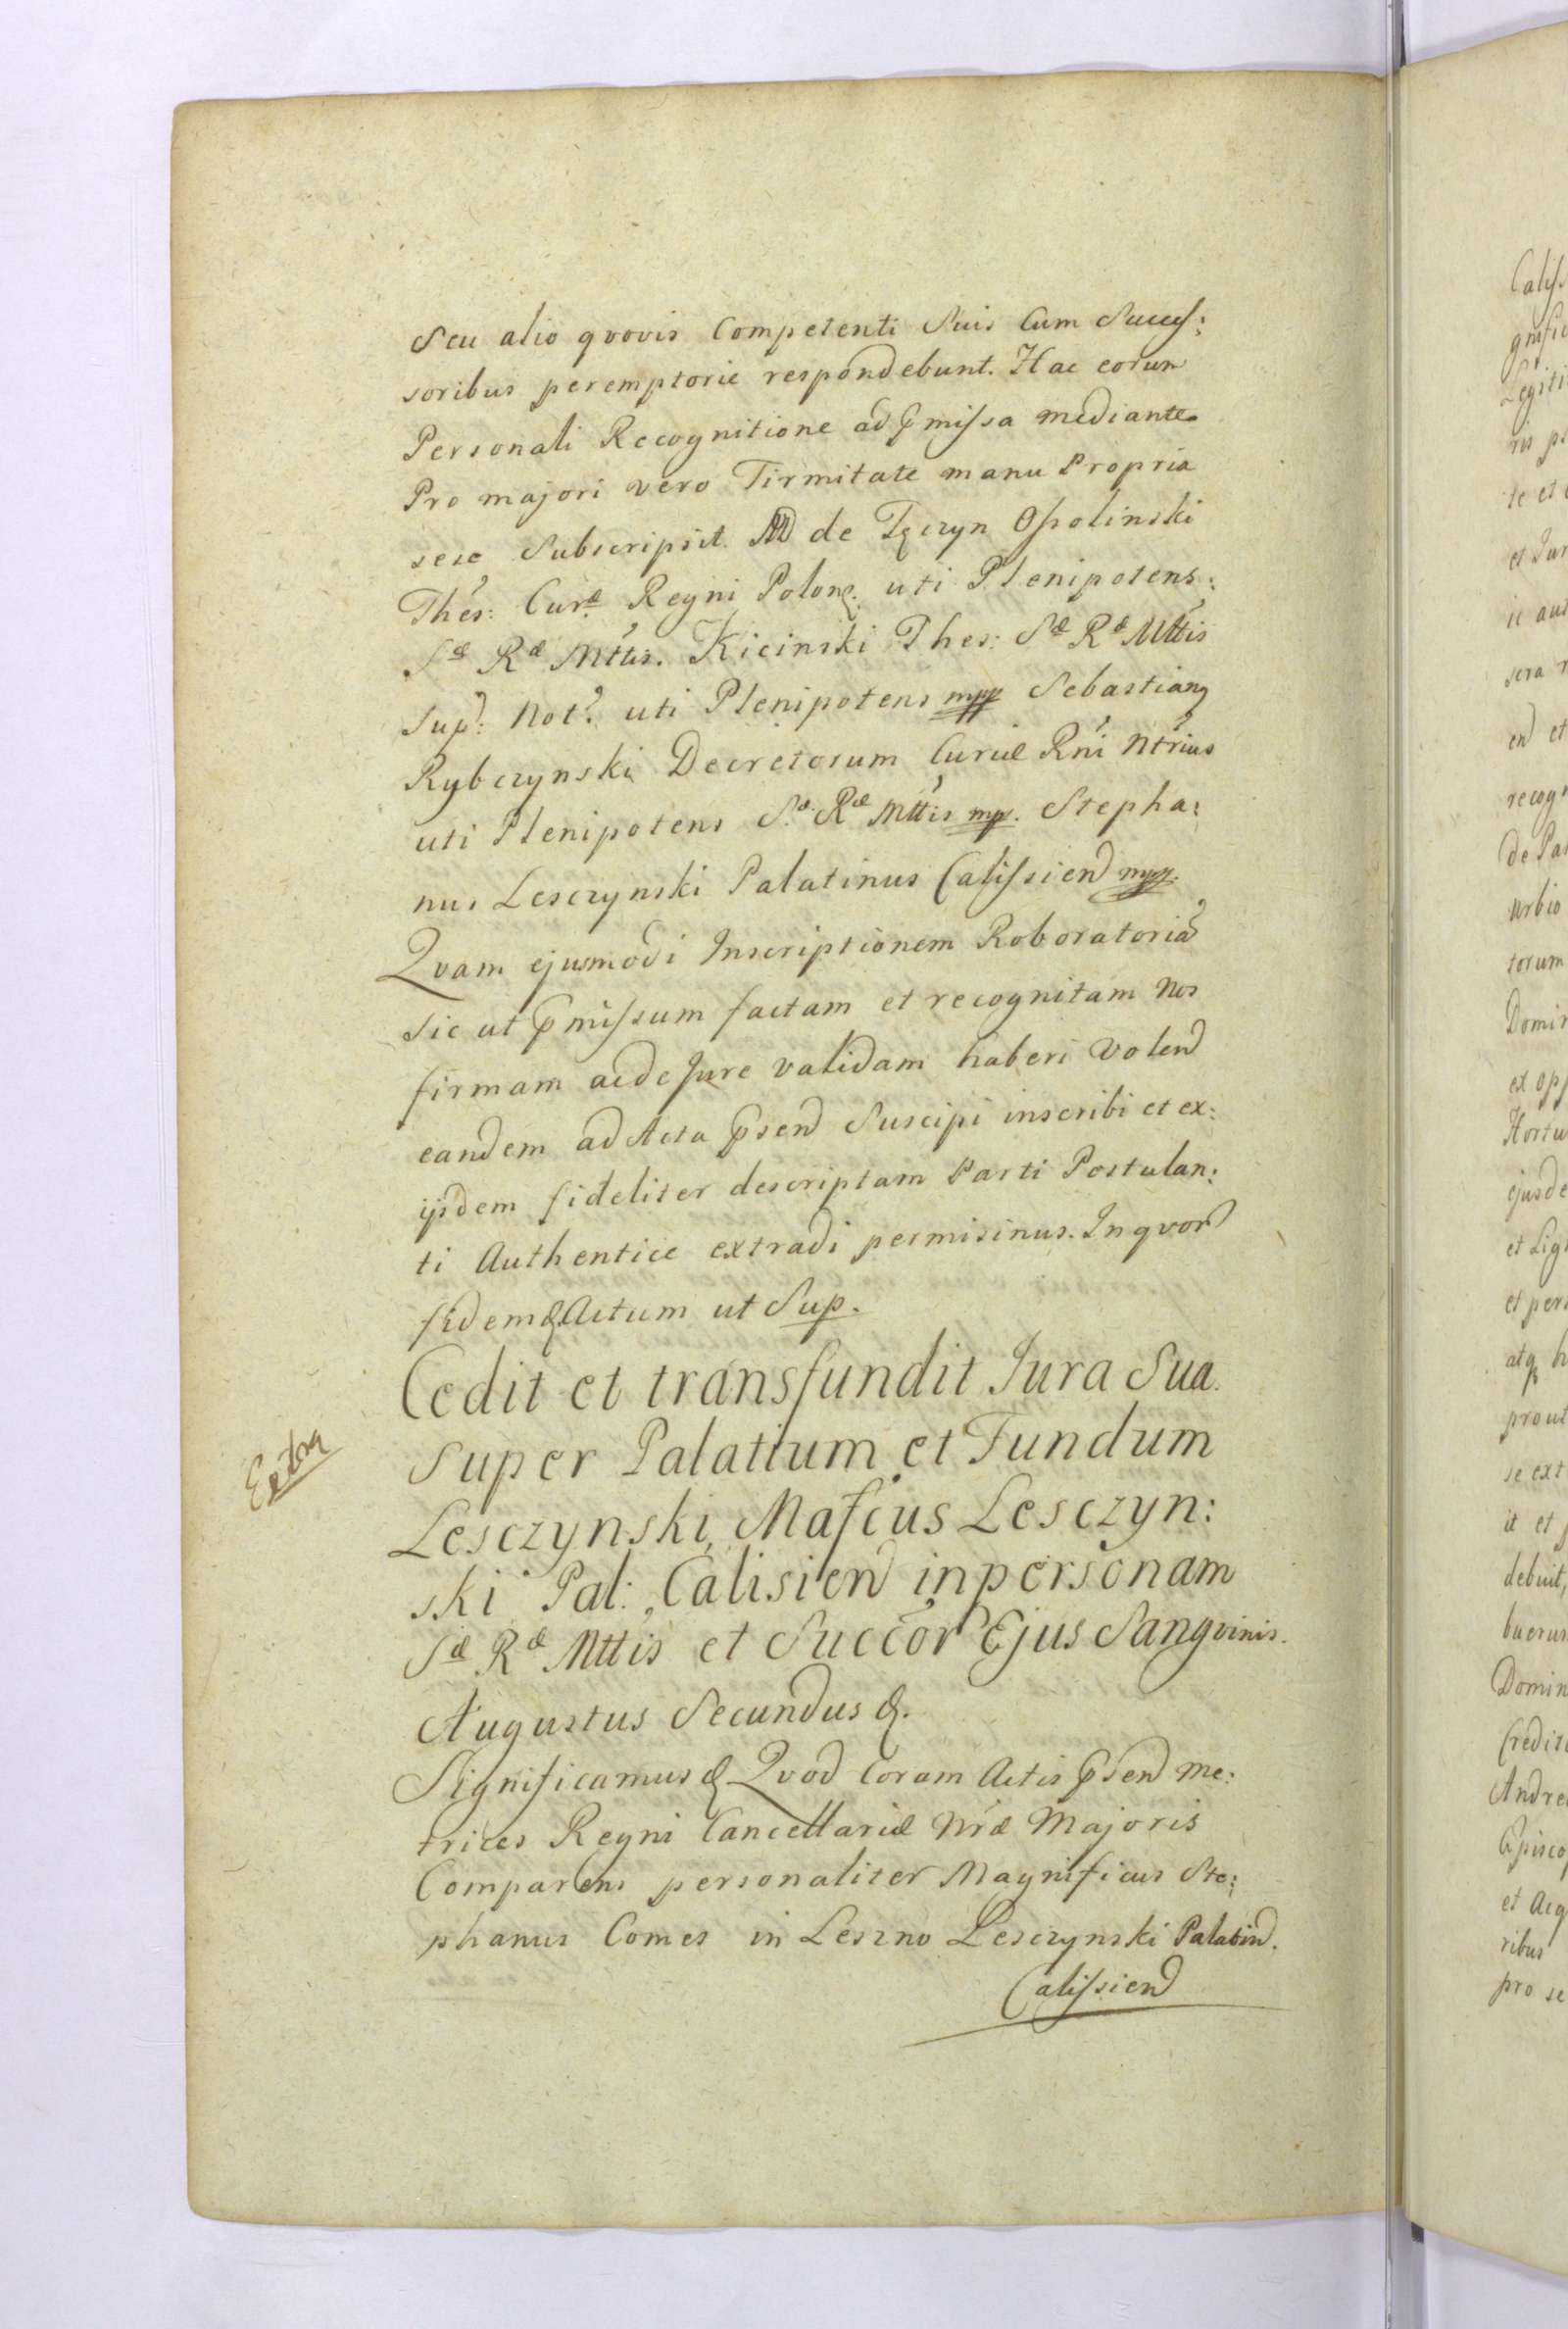 Seu alio qvovis Competenti Suis Cum Succes:
soribus peremptorie respondebunt. Hac eorum
Personali Recognitione ad p̃missa mediante
Pro majori vero Firmitate manu Propria
sese Subscripsit. de Tęczyn Ossolinski
Thes: Curæ Regni Polon: uti Plenipotens:
Sæ Ræ Mttis. Kicinski Thes: Sæ Ræ Mttis
Sup: Not: uti Plenipotens mpp Sebastianꝰ
Rybczynski Decretorum Curiæ Rni Ntrius
uti Plenipotens Sæ Ræ Mttis mp. Stepha:
nus Lesczynski Palatinus Calissien mpp.
Qvam ejusmodi Inscriptionem Roboratoria
Sic ut p̃missum factam et recognitam Nos
firmam ac de Jure validam haberi Volen
eandem ad Acta p̃sen Suscipi inscribi et ex:
ijsdem fideliter descriptam Parti Postulan:
ti Authentice extradi permisimus. In qvor
fidem & Actum ut Sup.
Cedit et transfundit Jura Sua
Super Palatium et Fundum
Lesczynski, Mafcus Lesczyn:
ski Pal: Calisien in personam
Sæ Ræ Mttis et Succor Ejus Sangvinis.
Extra
Augustus Secundus &.
Significamus & Qvod Coram Actis p̃sen Me:
trices Regni Cancellariæ Nræ Majoris
Comparens personaliter Magnificus Ste:
phanus Comes in Leszno Lesczynski Palatin.
Calissien
Caliss
te et
et Jur
sera
en et
recogn
de Pa
urbio
torum
Domin
ex opp
Hortu
ejusde
et Lig
et per
atq h
prout
se ext
it et
debuit,
buerun
Domin
Credit
Andre
Episco
et
ribus
pro se